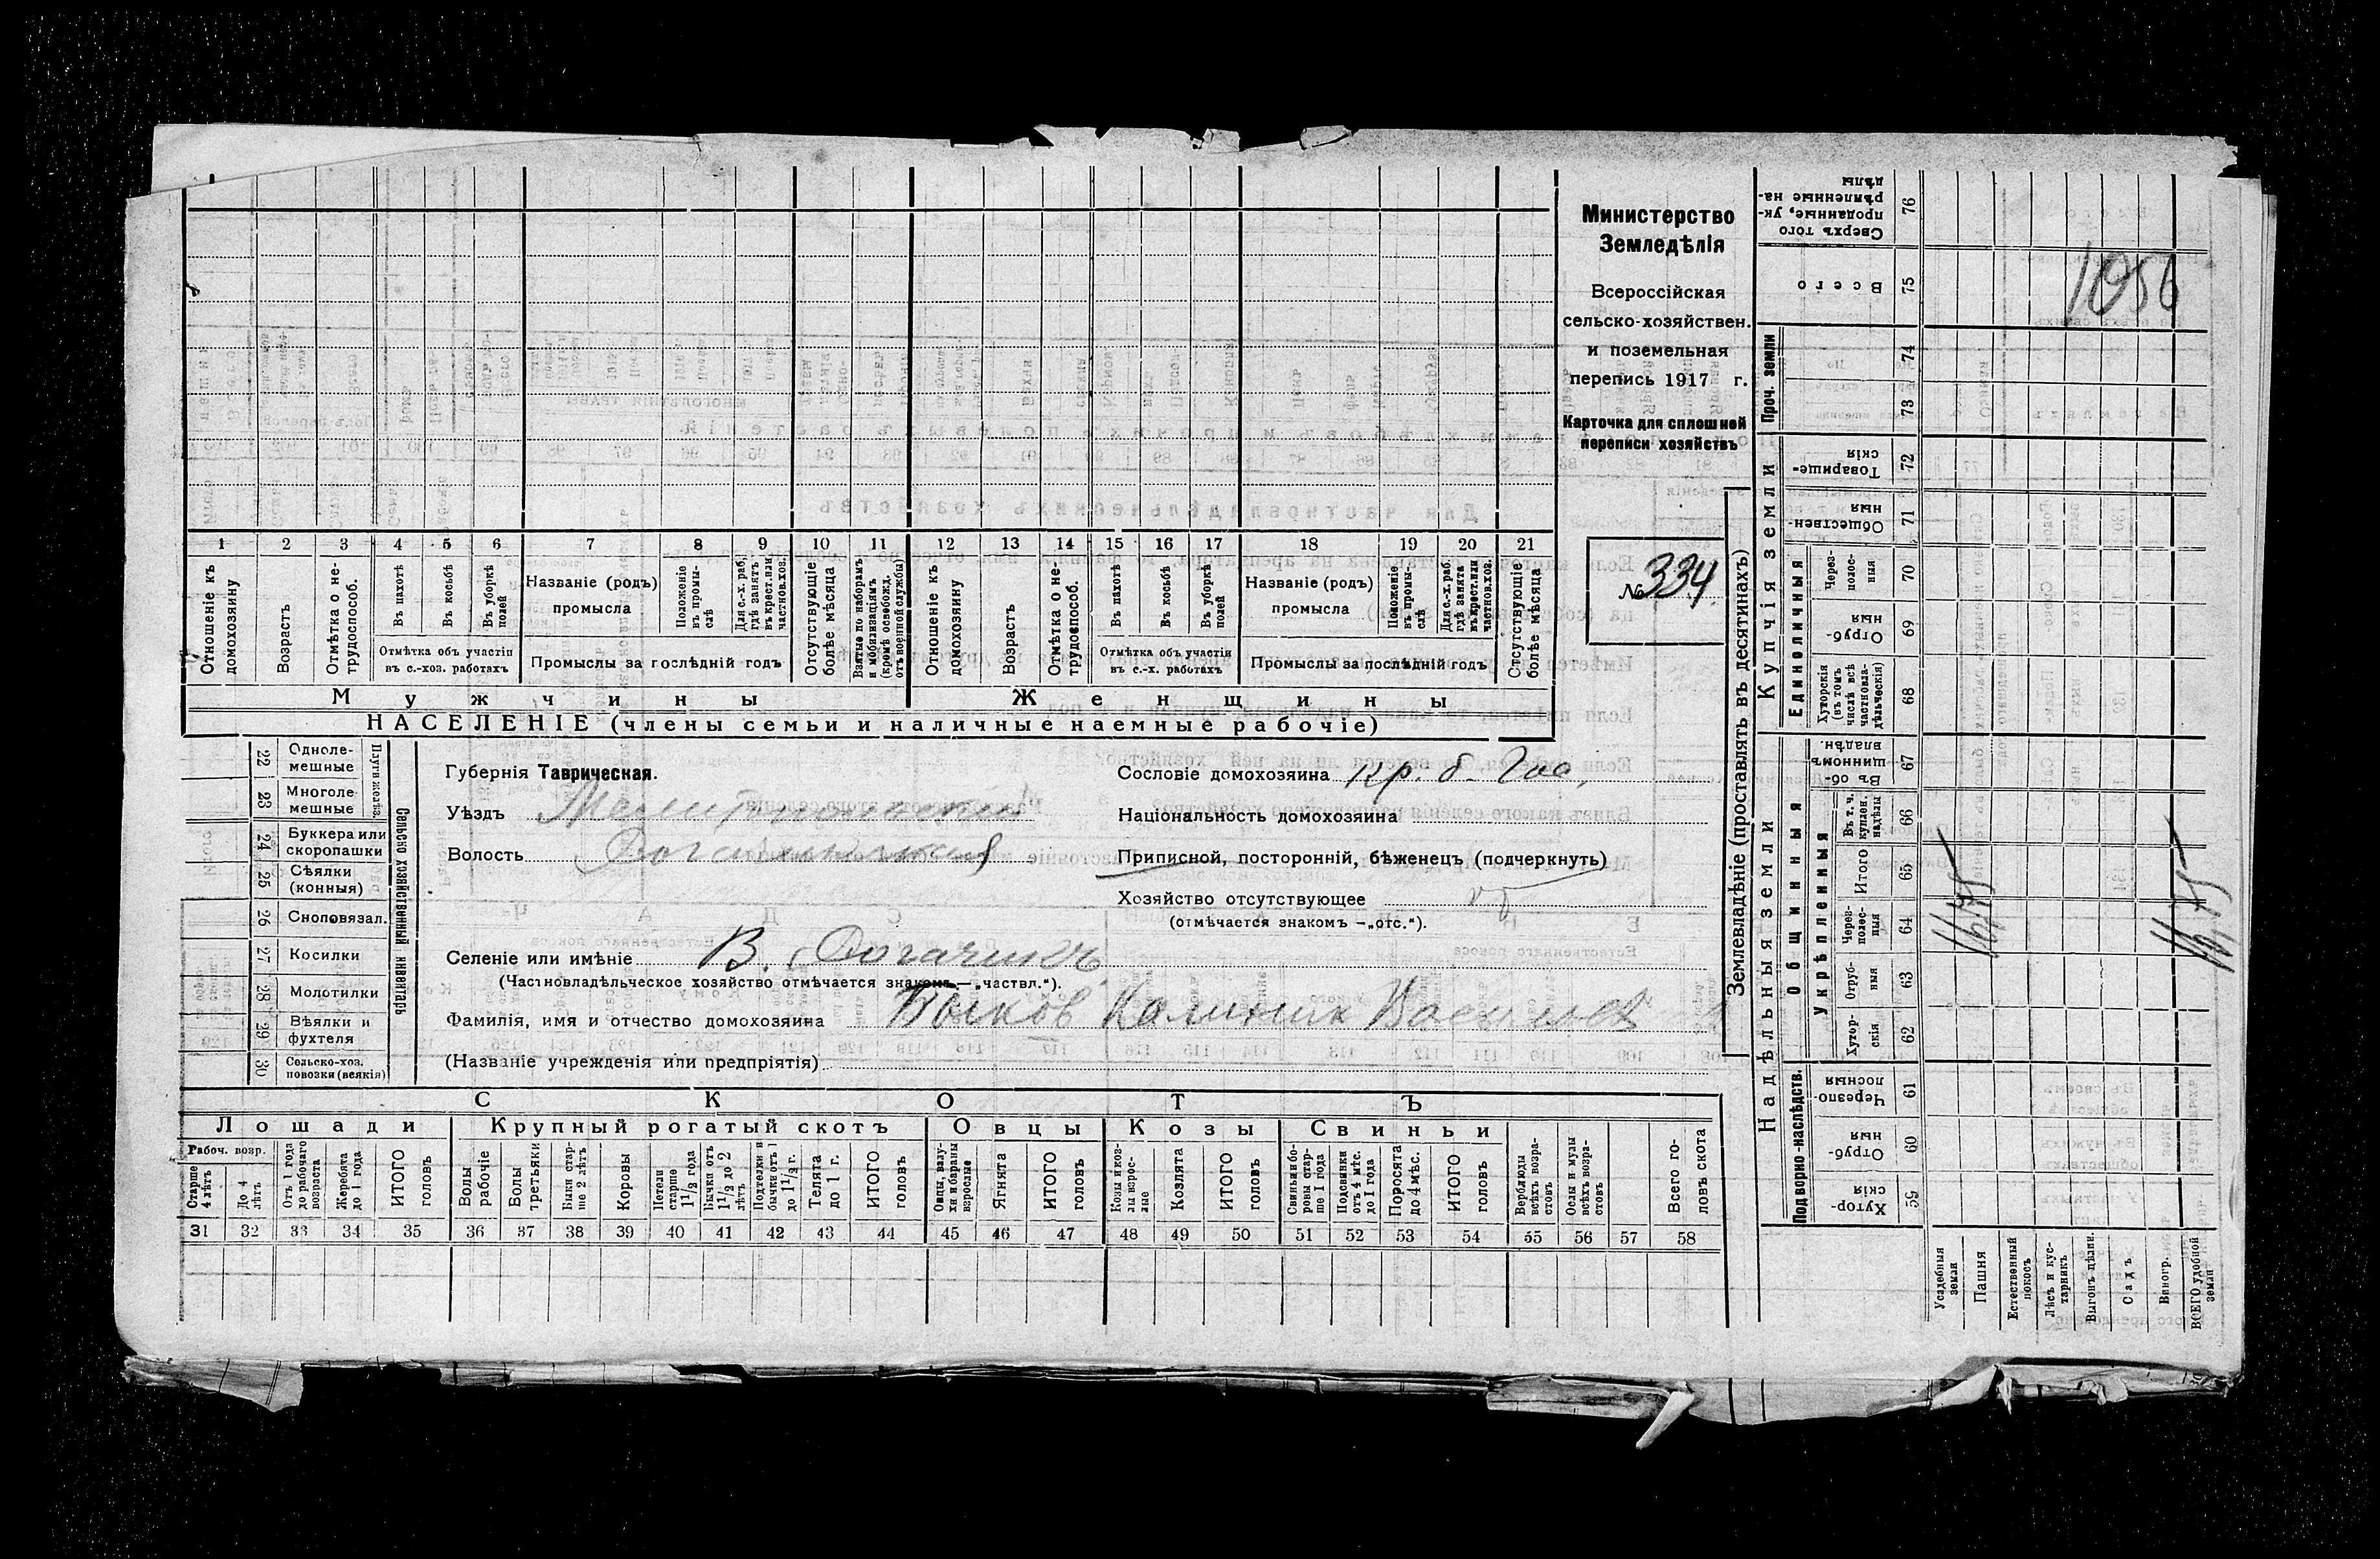 Министерство
Земледѣлія
Всероссійская
сельско-хозяйствен.
и поземельная
перепись 1917 г.
Карточка для сплошной
переписи хозяйствъ
№ 334
1 2 3 4 5 6 7 8 9 10 11 12 13 14 15 16 17 18 19 20 21
Отношеніе къ домохозяину
Возрастъ
Отмѣтка о нетрудоспособ.
Въ пахотѣ
Въ косьбѣ
Въ уборкѣ полей
Отмѣтка объ участіи
въ с.-хоз. работахъ
Названіе (родъ)
промысла
Положеніе въ промыслѣ
Для с.-х. раб. гдѣ занятъ въ крест. или частнов. хоз.
Промыслы за послѣдній годъ
Отсутствующіе болѣе мѣсяца
Взятые по наборамъ и мобилизаціямъ (кромѣ освобожд. отъ военной службы)
Отношеніе къ домохозяину
Возрастъ
Отмѣтка о нетрудоспособ.
Въ пахотѣ
Въ косьбѣ
Въ уборкѣ полей
Отмѣтка объ участіи
въ с.-х. работахъ
Названіе (родъ)
промысла
Положеніе въ промыслѣ
Для с.-х. раб. гдѣ занята въ крест. или частнов. хоз.
Промыслы за послѣдній годъ
Отсутствующіе болѣе мѣсяца
Мужчины Женщины
НАСЕЛЕНІЕ (члены семьи и наличные наемные рабочіе)
Сельско хозяйственный инвентарь
Плуги желѣз.
22 Одноле-
мешные
23 Многоле-
мешные
24 Буккера или
скоропашки
25 Сѣялки
(конныя)
26 Сноповязал.
27 Косилки
28 Молотилки
29 Вѣялки и
фухтеля
30 Сельско-хоз.
повозки (всякія)
Губернія Таврическая.
Уѣздъ Мелитопольскій
Волость Рогачикская
Селеніе или имѣніе В. Рогачикъ
(Частновладѣльческое хозяйство отмѣчается знакомъ—„частвл.“).
Фамилія, имя и отчество домохозяина Быков Калиник Васильев
(Названіе учрежденія или предпріятія)
Сословіе домохозяина кр. б. Гос.
Національность домохозяина
Приписной, посторонній, бѣженецъ (подчеркнуть)
Хозяйство отсутствующее
(отмѣчается знакомъ —„отс.“).
СКОТЪ
Лошади Крупный рогатый скотъ Овцы Козы Свиньи
Рабоч. возр.
Старше 4 лѣтъ
До 4 лѣтъ
Отъ 1 года до рабочаго возраста
Жеребята до 1 года
ИТОГО головъ
Волы рабочіе
Волы третьяки
Быки старше 2 лѣтъ
Коровы
Нетели старше 1½ года
Бычки отъ 1½ до 2 лѣтъ
Подтелки и бычки отъ 1 до 1½ г.
Телята до 1 г.
ИТОГО головъ
Овцы, валухи и бараны взрослые
Ягнята
ИТОГО головъ
Козы и козлы взрослые
Козлята
ИТОГО головъ
Свиньи и боровы старше 1 года
Подсвинки отъ 4 мѣс. до 1 года
Поросята до 4 мѣс.
ИТОГО головъ
Верблюды всѣхъ возрастовъ
Ослы и мулы всѣхъ возрастовъ
Всего головъ скота
31 32 33 34 35 36 37 38 39 40 41 42 43 44 45 46 47 48 49 50 51 52 53 54 55 56 57 58
Землевладѣніе (проставлять въ десятинахъ)
Надѣльныя земли
Купчія земли
Проч. земли
Подворно-наслѣдств.
Общинныя
Укрѣпленныя
Единоличныя
Сверхъ того проданные, укрѣпленные надѣлы 76
Всего 75
74
73
Товарищескія 72
Общественныя 71
Черезполосныя 70
Отрубныя 69
Хуторскія (въ томъ числѣ всѣ частновладѣльческія) 68
Въ общинномъ владѣн. 67
Въ т. ч. куплен. надѣлы 66
Итого 65
Черезполосныя 64
Отрубныя 63
Хуторскія 62
Черезполосныя 61
Отрубныя 60
Хуторскія 59
Усадебныя земли
Пашня
Естественный покосъ
Лѣсъ и кустарникъ
Выгонъ цѣлин.
Садъ
Виногр.
ВСЕГО удобной земли
1056
16,75
16,75